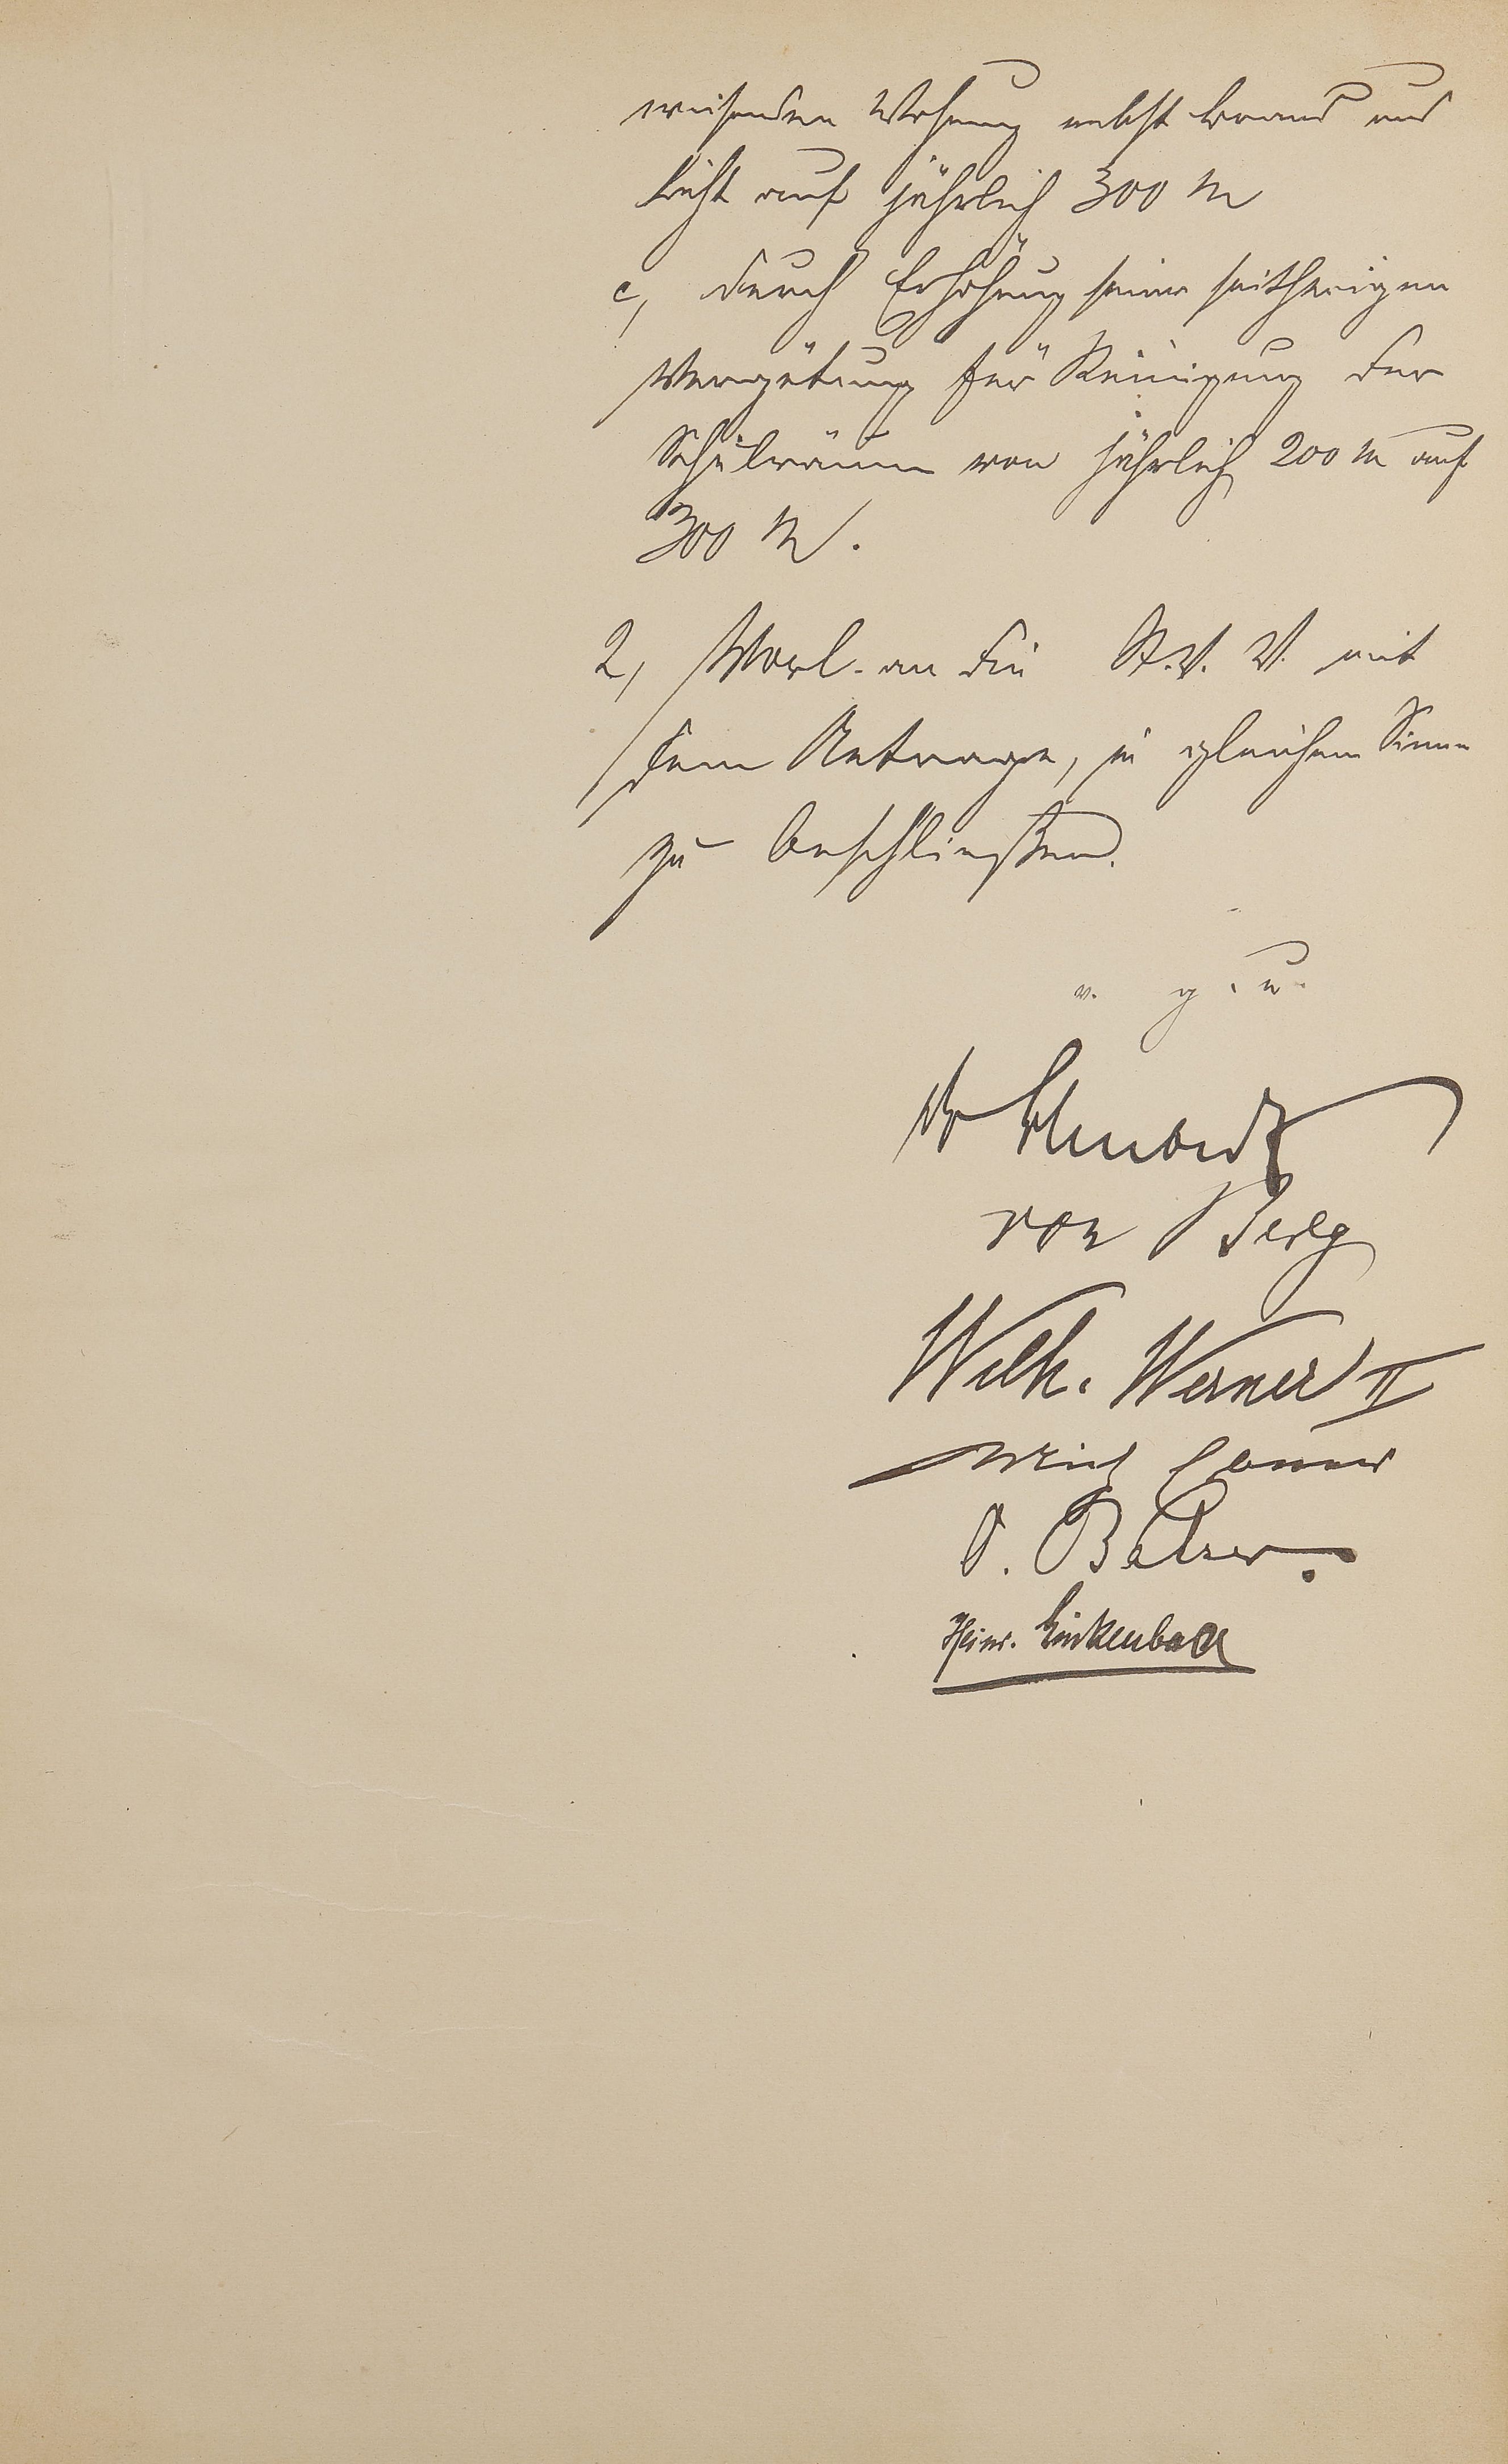 weisenden Wohnung nebst Brand und
Licht auf jährlich 300 M
c, durch Erhöhung seiner seitherigen
Vergütung für Reinigung der
Schulräume von jährlich 200 M auf
300 M.
2, Vorl. an die St. V. V. mit
dem Antrage, in gleichem Sinne
zu beschließen.
v. g. u.
Dr
von Berg
Wilh. Werner II
Balzer.
Heinr. Linkenbach